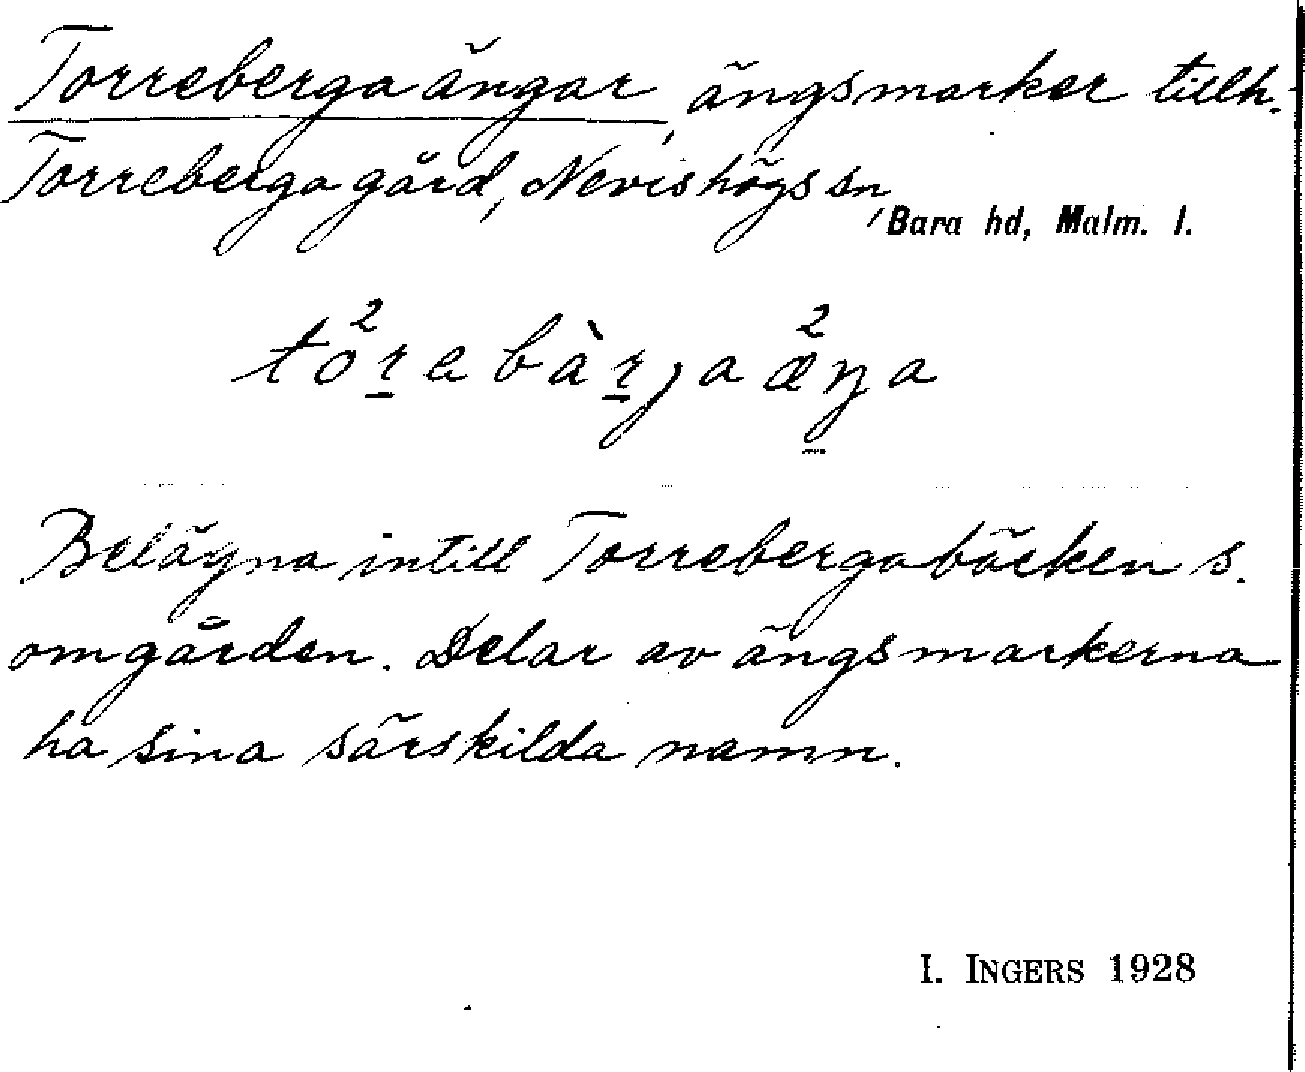 Torreberga ängar, ängsmarker tillh.
Torreberga gård, Nevishögs sn, Bara hd, Malm. l.
tö²r̲ebàr̲ja æ²ŋa
Belägna intill Torrebergabäcken s.
om gården. Delar av ängsmarkerna
ha sina särskilda namn.
I. INGERS 1928